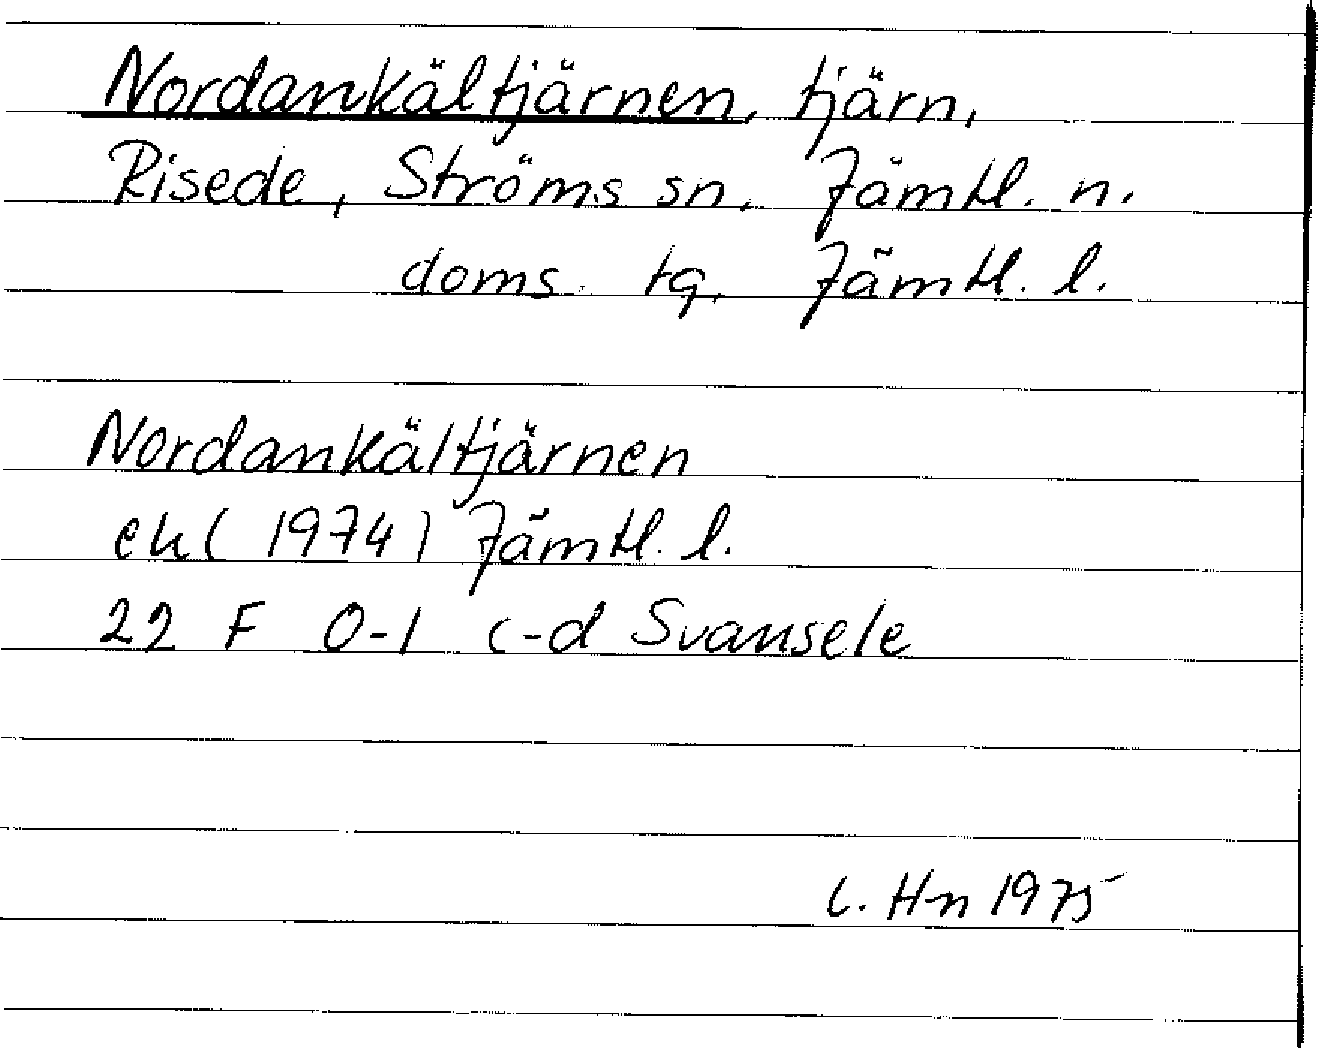 Nordankältjärnen, tjärn,
Risede, Ströms sn, Jämtl. n.
doms. tg, Jämtl. l.
Nordankältjärnen
ek (1974) Jämtl. l.
22 F 0-1 c-d Svansele
C. Hn 1975